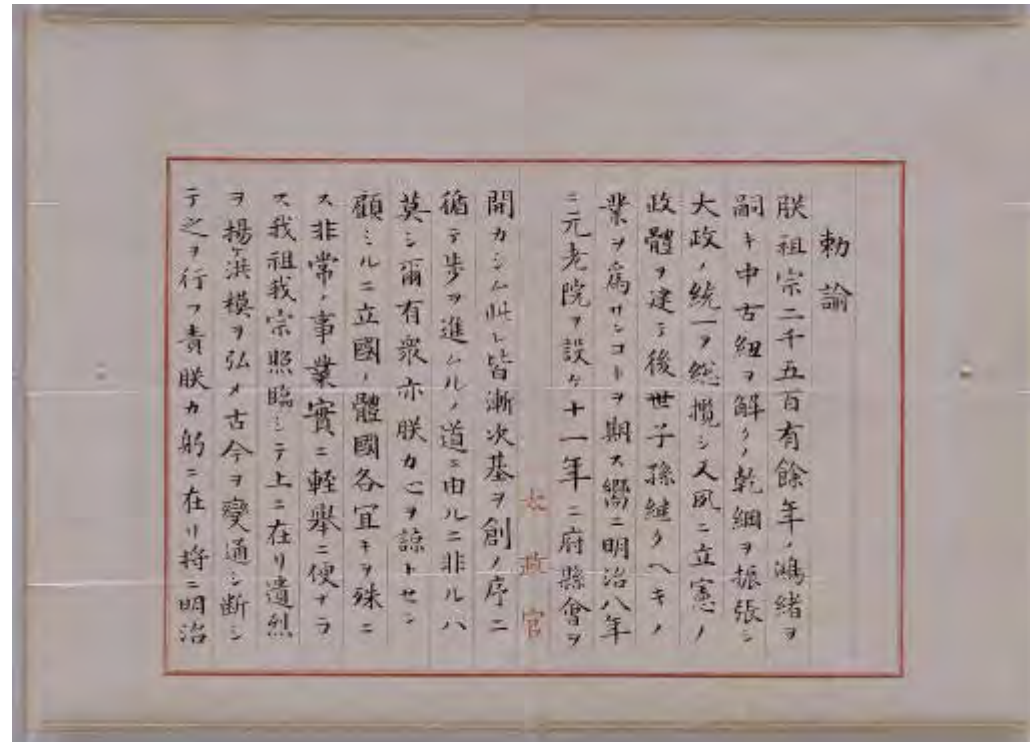 勅諭
朕祖宗二千五百有餘年ノ鴻緒ヲ
嗣キ中古紐ヲ解クノ乾綱ヲ振張シ
大政ノ統一ヲ総攬シ又夙ニ立憲ノ
政體ヲ建テ後世子孫継クヘキノ
業ヲ爲サンコトヲ期ス嚮ニ明治八年
ニ元老院ヲ設ケ十一年ニ府縣會ヲ
太政官
開カシム此レ皆漸次基ヲ創メ序ニ
循テ歩ヲ進ムルノ道ニ由ルニ非ルハ
莫シ爾有衆亦朕カ心ヲ諒トセン
顧ミルニ立國ノ體國各宜キヲ殊ニ
ス非常ノ事業實ニ輕舉ニ便ナラ
ス我祖我宗照臨シテ上ニ在リ遺烈
ヲ揚ケ洪模ヲ弘メ古今ヲ變通シ断シ
テ之ヲ行フ責朕カ躬ニ在リ将ニ明治